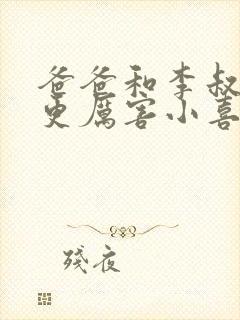 爸爸和李叔
更厲害小喜
殘夜